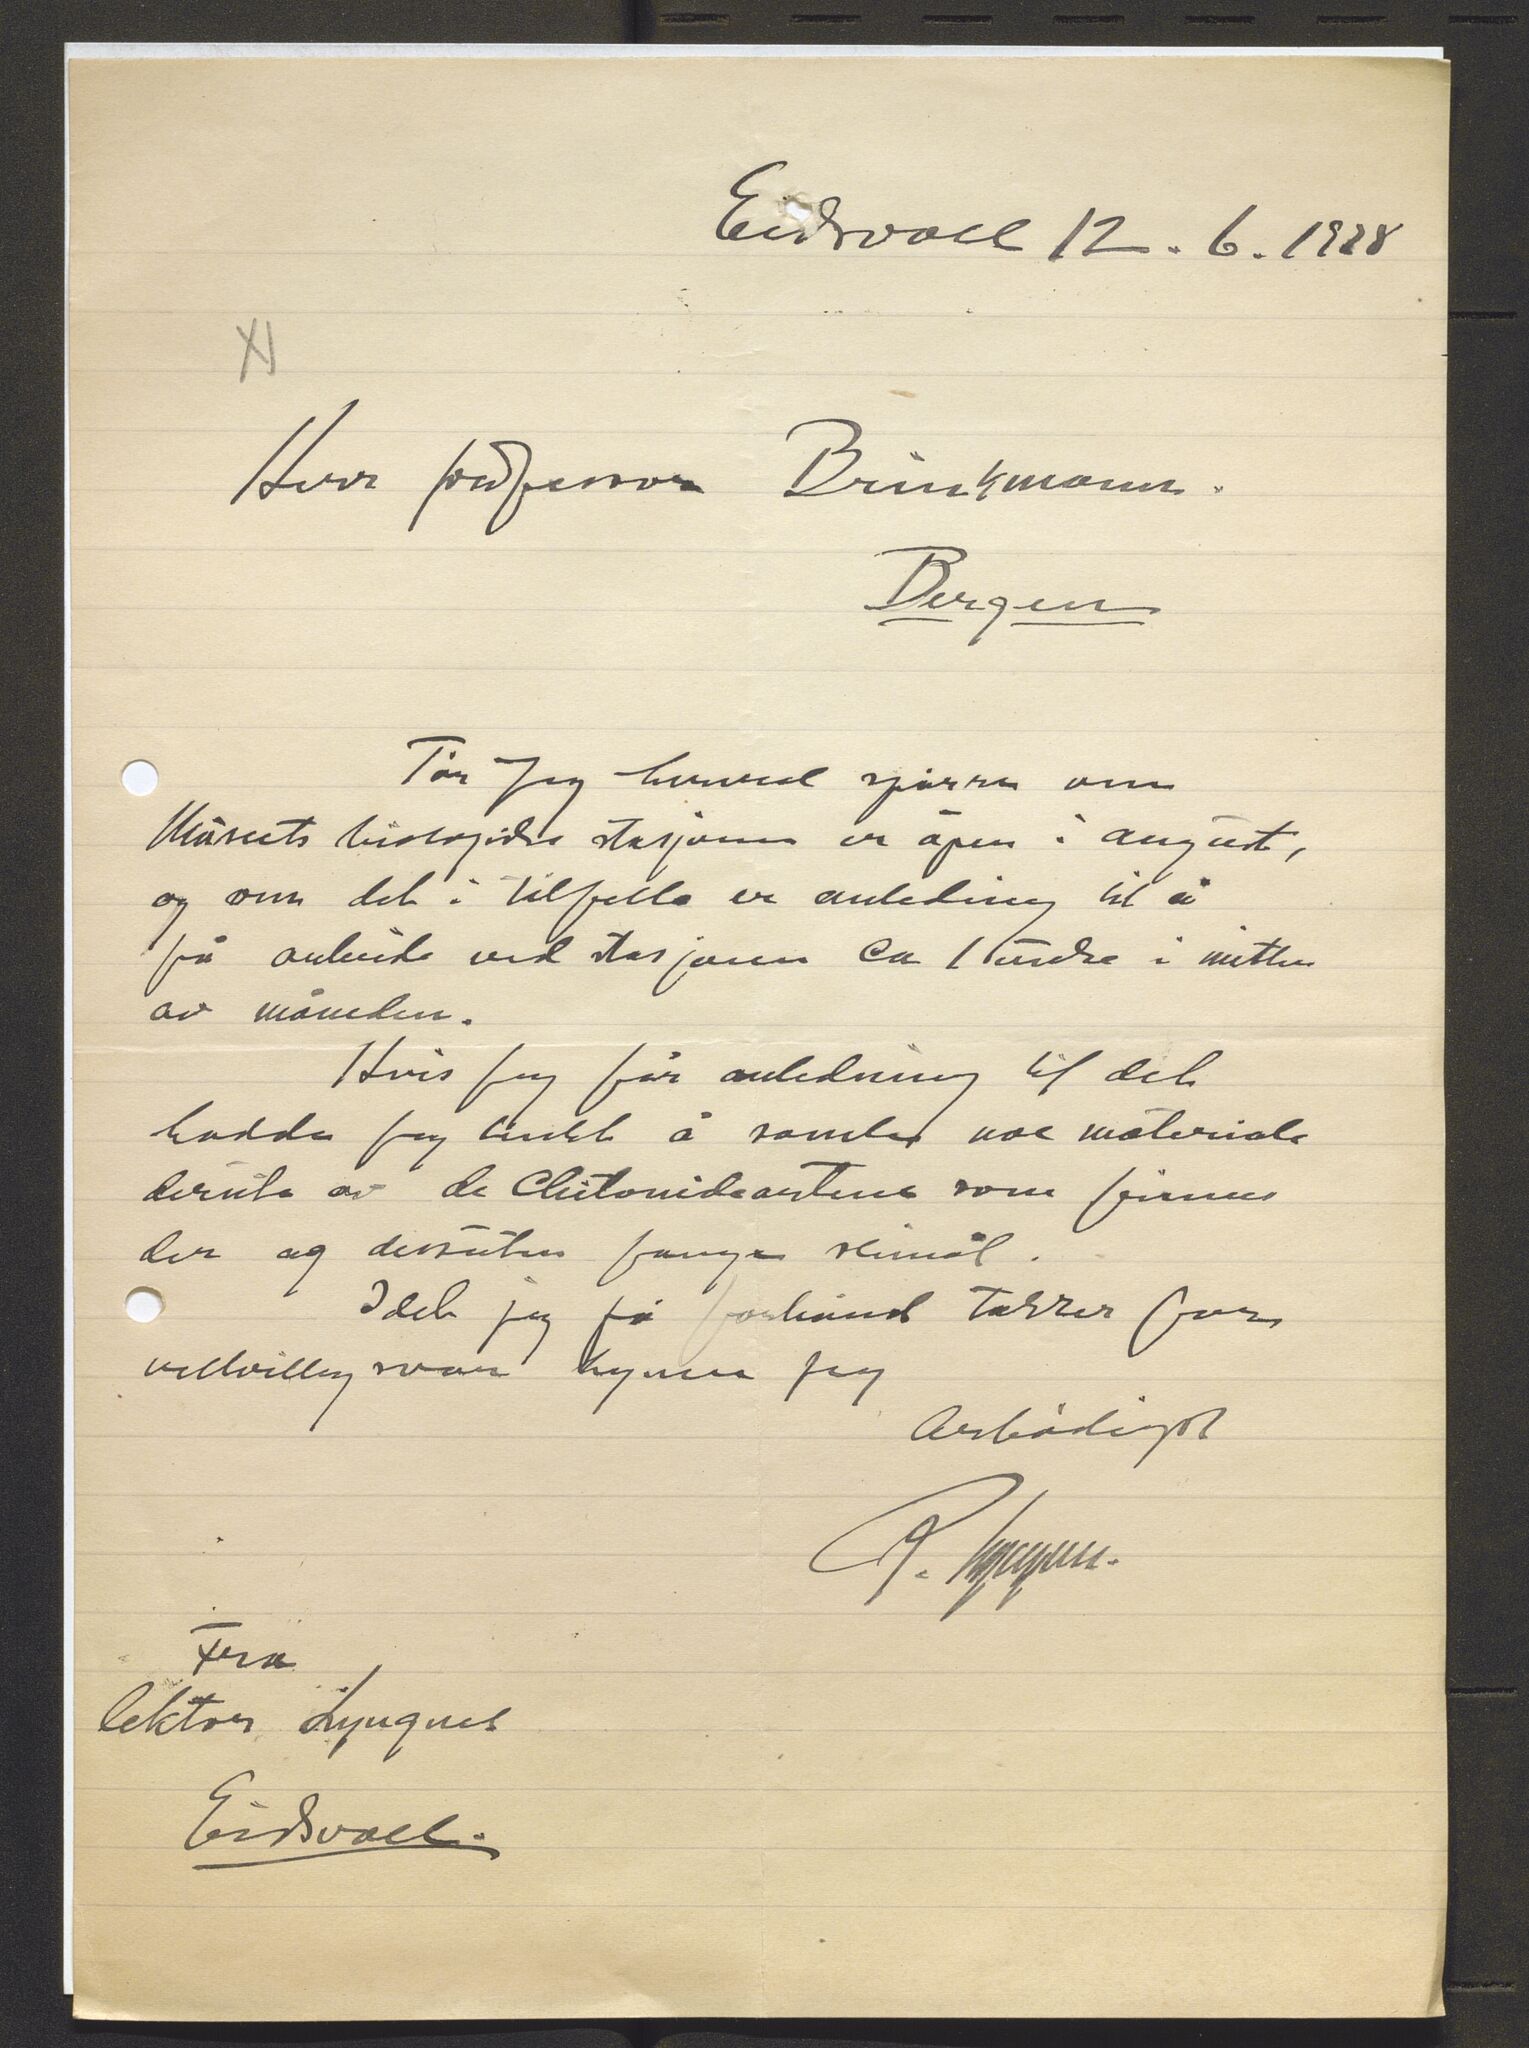 Eidsvoll 12. 6. 1928
Herr professor Brinkmann.
Bergen
Tør jeg herved spørre om
Museets biologiske stasjon er åpen i august,
og om det i tilfelle er anledning til å
få arbeide ved stasjonen ca 1 uke i midten
av måneden.
Hvis jeg får anledning til det
hadde jeg tenkt å samle noe materiale
derute av de Chitonideartene som finnes
der og dessuten fange slimål.
Idet jeg på forhånd takker for
velvillig svar tegner jeg
Ærbødigst
Fra
lektor Lyngnes
Eidsvoll.